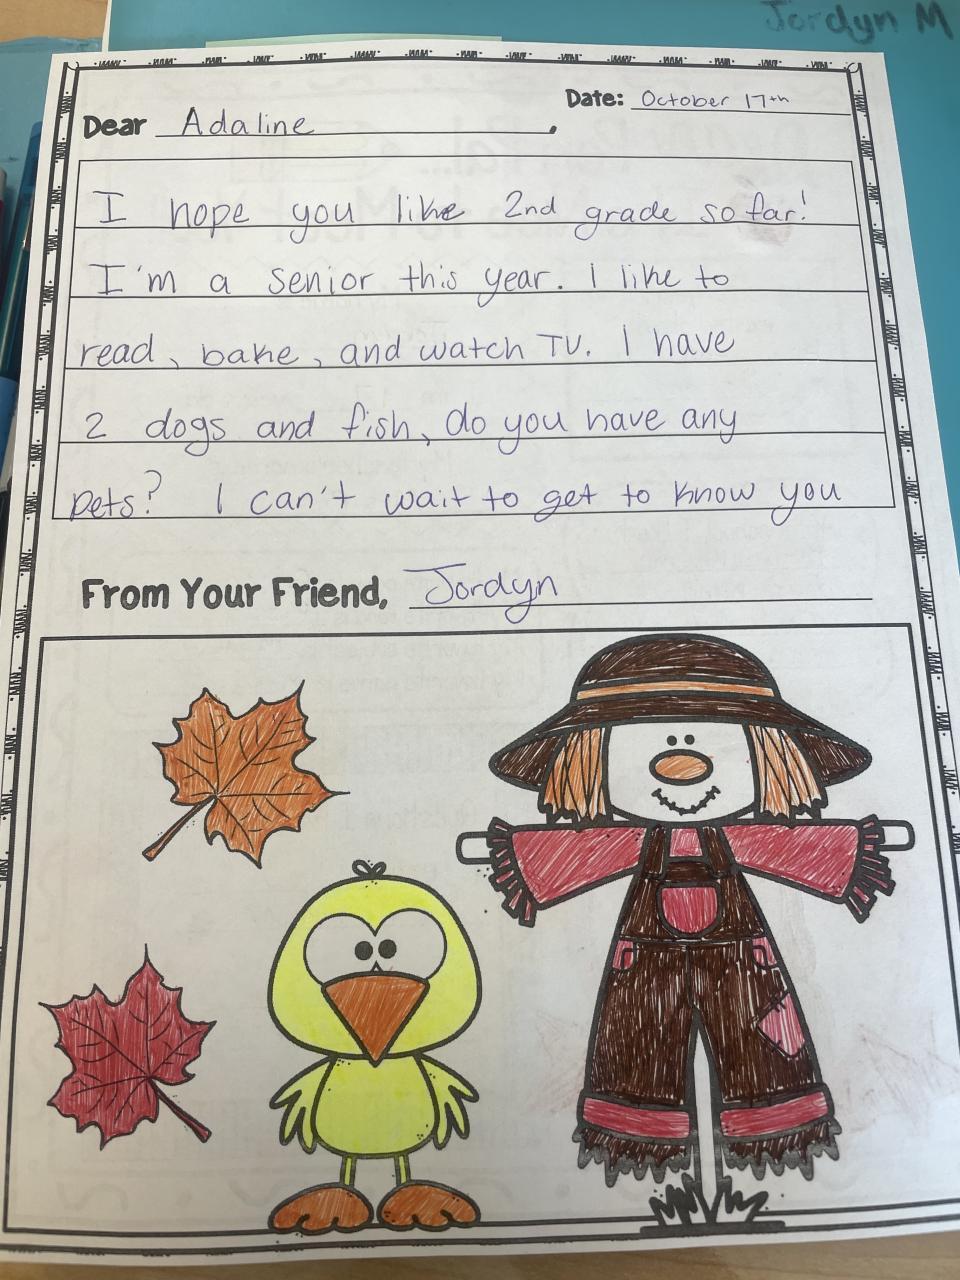 Jordyn M
Date: October 17th
Dear Adaline,
I hope you like 2nd grade so far!
I'm a senior this year. I like to
read, bake, and watch TV. I have
2 dogs and fish, do you have any
pets? I can't wait to get to know you
From Your Friend, Jordyn